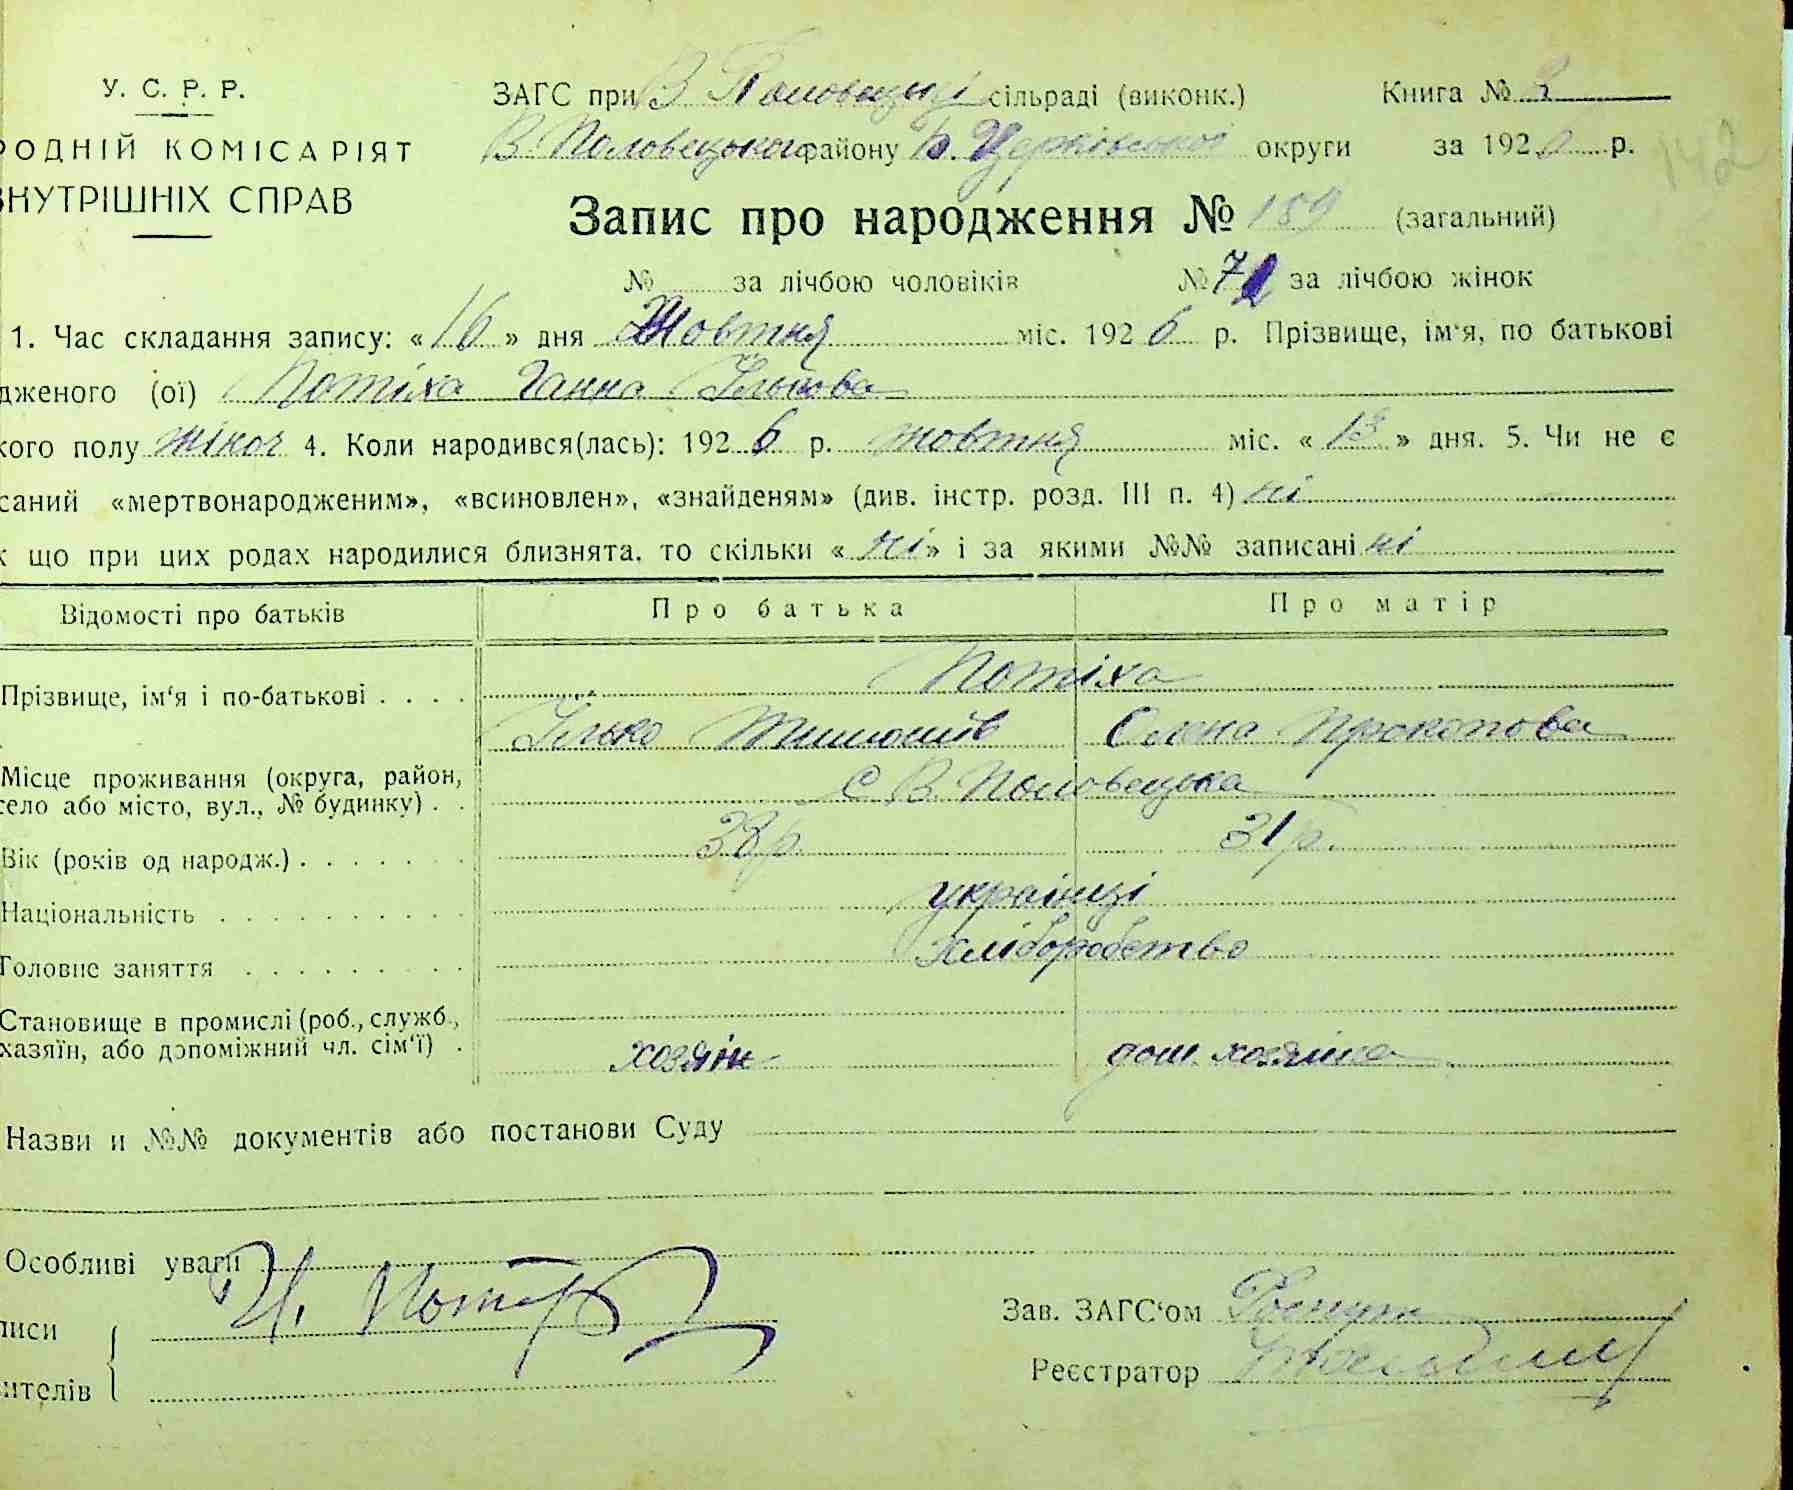 У. С. Р. Р.
РОДНІЙ КОМІСАРІЯТ
ВНУТРІШНІХ СПРАВ
ЗАГС при В Половецькі сільраді (виконк.) Книга №
В. Половецького району Б. Церківської округи за 1926 р.
142
Запис про народження № 189 (загальний)
№ за лічбою чоловіків № 72 за лічбою жінок
1. Час складання запису: «16» дня Жовтня міс. 1926 р. Прізвище, ім'я, по батькові
дженого (ої) Потіха Ганна Ількова
кого полу жіноч 4. Коли народився(лась): 1926 р. жовтня міс. «13» дня. 5. Чи не є
саний «мертвонародженим», «всиновлен», «знайденям» (див. інстр. розд. III п. 4) ні
к що при цих родах народилися близнята, то скільки «ні» і за якими №№ записані ні
Відомості про батьків Про батька Про матір
Прізвище, ім'я і по-батькові . . . . Потіха
Ілько Тимошів Олена Прокопова
Місце проживання (округа, район,
село або місто, вул., № будинку) . . С В. Половецька
Вік (років од народж.) . . . . . . . 38 р. 31 р.
Національність . . . . . . . . . . українці
Головне заняття . . . . . . . . . хліборобство
Становище в промислі (роб., служб.,
хазяїн, або допоміжний чл. сім'ї) . хозяїн дом. хозяйка
Назви и №№ документів або постанови Суду
Особливі уваги
писи
ителів
Зав. ЗАГС'ом
Реєстратор